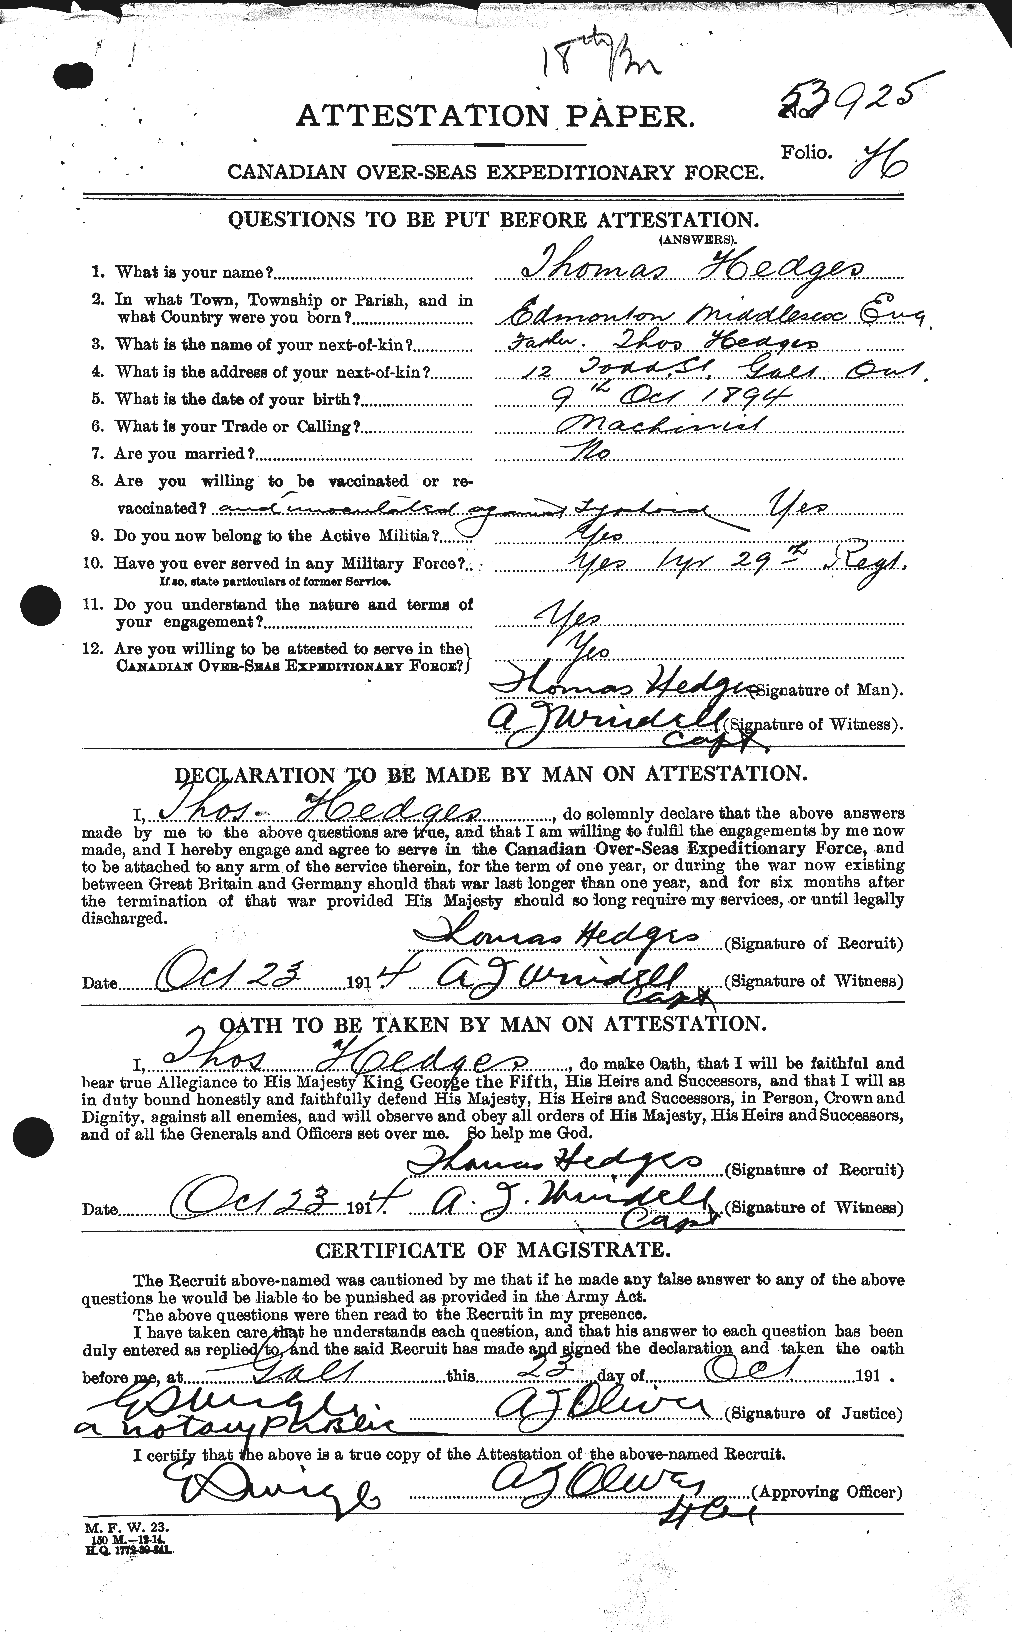 18th Bn
53925
No.
ATTESTATION PAPER.
Folio. H
CANADIAN OVER-SEAS EXPEDITIONARY FORCE.
QUESTIONS TO BE PUT BEFORE ATTESTATION.
(ANSWERS).
1. What is your name? Thomas Hedges
2. In what Town, Township or Parish, and in
what Country were you born? Edmonton Middlesex Eng.
3. What is the name of your next-of-kin? Father. Thos Hedges
4. What is the address of your next-of-kin? 12 Todd. St. Galt. Ont.
5. What is the date of your birth? 9th Oct 1894
6. What is your Trade or Calling? Machinist
7. Are you married? No
8. Are you willing to be vaccinated or re-
vaccinated? and inoculated against typhoid Yes
9. Do you now belong to the Active Militia? Yes
10. Have you ever served in any Military Force? Yes 1yr 29th Regt.
If so, state particulars of former Service.
11. Do you understand the nature and terms of
your engagement? Yes
12. Are you willing to be attested to serve in the
CANADIAN OVER-SEAS EXPEDITIONARY FORCE? Yes
Thomas Hedges (Signature of Man).
A J Windell (Signature of Witness).
Capt.
DECLARATION TO BE MADE BY MAN ON ATTESTATION.
I, Thos. Hedges, do solemnly declare that the above answers
made by me to the above questions are true, and that I am willing to fulfil the engagements by me now
made, and I hereby engage and agree to serve in the Canadian Over-Seas Expeditionary Force, and
to be attached to any arm of the service therein, for the term of one year, or during the war now existing
between Great Britain and Germany should that war last longer than one year, and for six months after
the termination of that war provided His Majesty should so long require my services, or until legally
discharged.
Thomas Hedges (Signature of Recruit)
Date Oct 23 1914 A J Windell (Signature of Witness)
Capt
OATH TO BE TAKEN BY MAN ON ATTESTATION.
I, Thos Hedges, do make Oath, that I will be faithful and
bear true Allegiance to His Majesty King George the Fifth, His Heirs and Successors, and that I will as
in duty bound honestly and faithfully defend His Majesty, His Heirs and Successors, in Person, Crown and
Dignity, against all enemies, and will observe and obey all orders of His Majesty, His Heirs and Successors,
and of all the Generals and Officers set over me. So help me God.
Thomas Hedges (Signature of Recruit)
Date Oct 23 1914. A. J. Windell (Signature of Witness)
Capt
CERTIFICATE OF MAGISTRATE.
The Recruit above-named was cautioned by me that if he made any false answer to any of the above
questions he would be liable to be punished as provided in the Army Act.
The above questions were then read to the Recruit in my presence.
I have taken care that he understands each question, and that his answer to each question has been
duly entered as replied to, and the said Recruit has made and signed the declaration and taken the oath
before me, at Galt this 23 day of Oct 191 .
A J Oliver (Signature of Justice)
a notary Public
I certify that the above is a true copy of the Attestation of the above-named Recruit.
A J Oliver (Approving Officer)
M. F. W. 23.
150 M.—12-14.
H.Q. 1772-39-841.